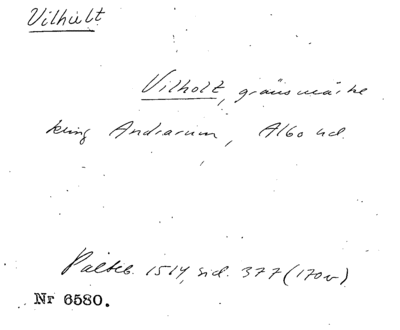 Vilhult
Vilholt, gränsmärke
kring Andrarum, Albo hd.
Palteb. 1514, sid. 377 (170v)
Nr 6580.